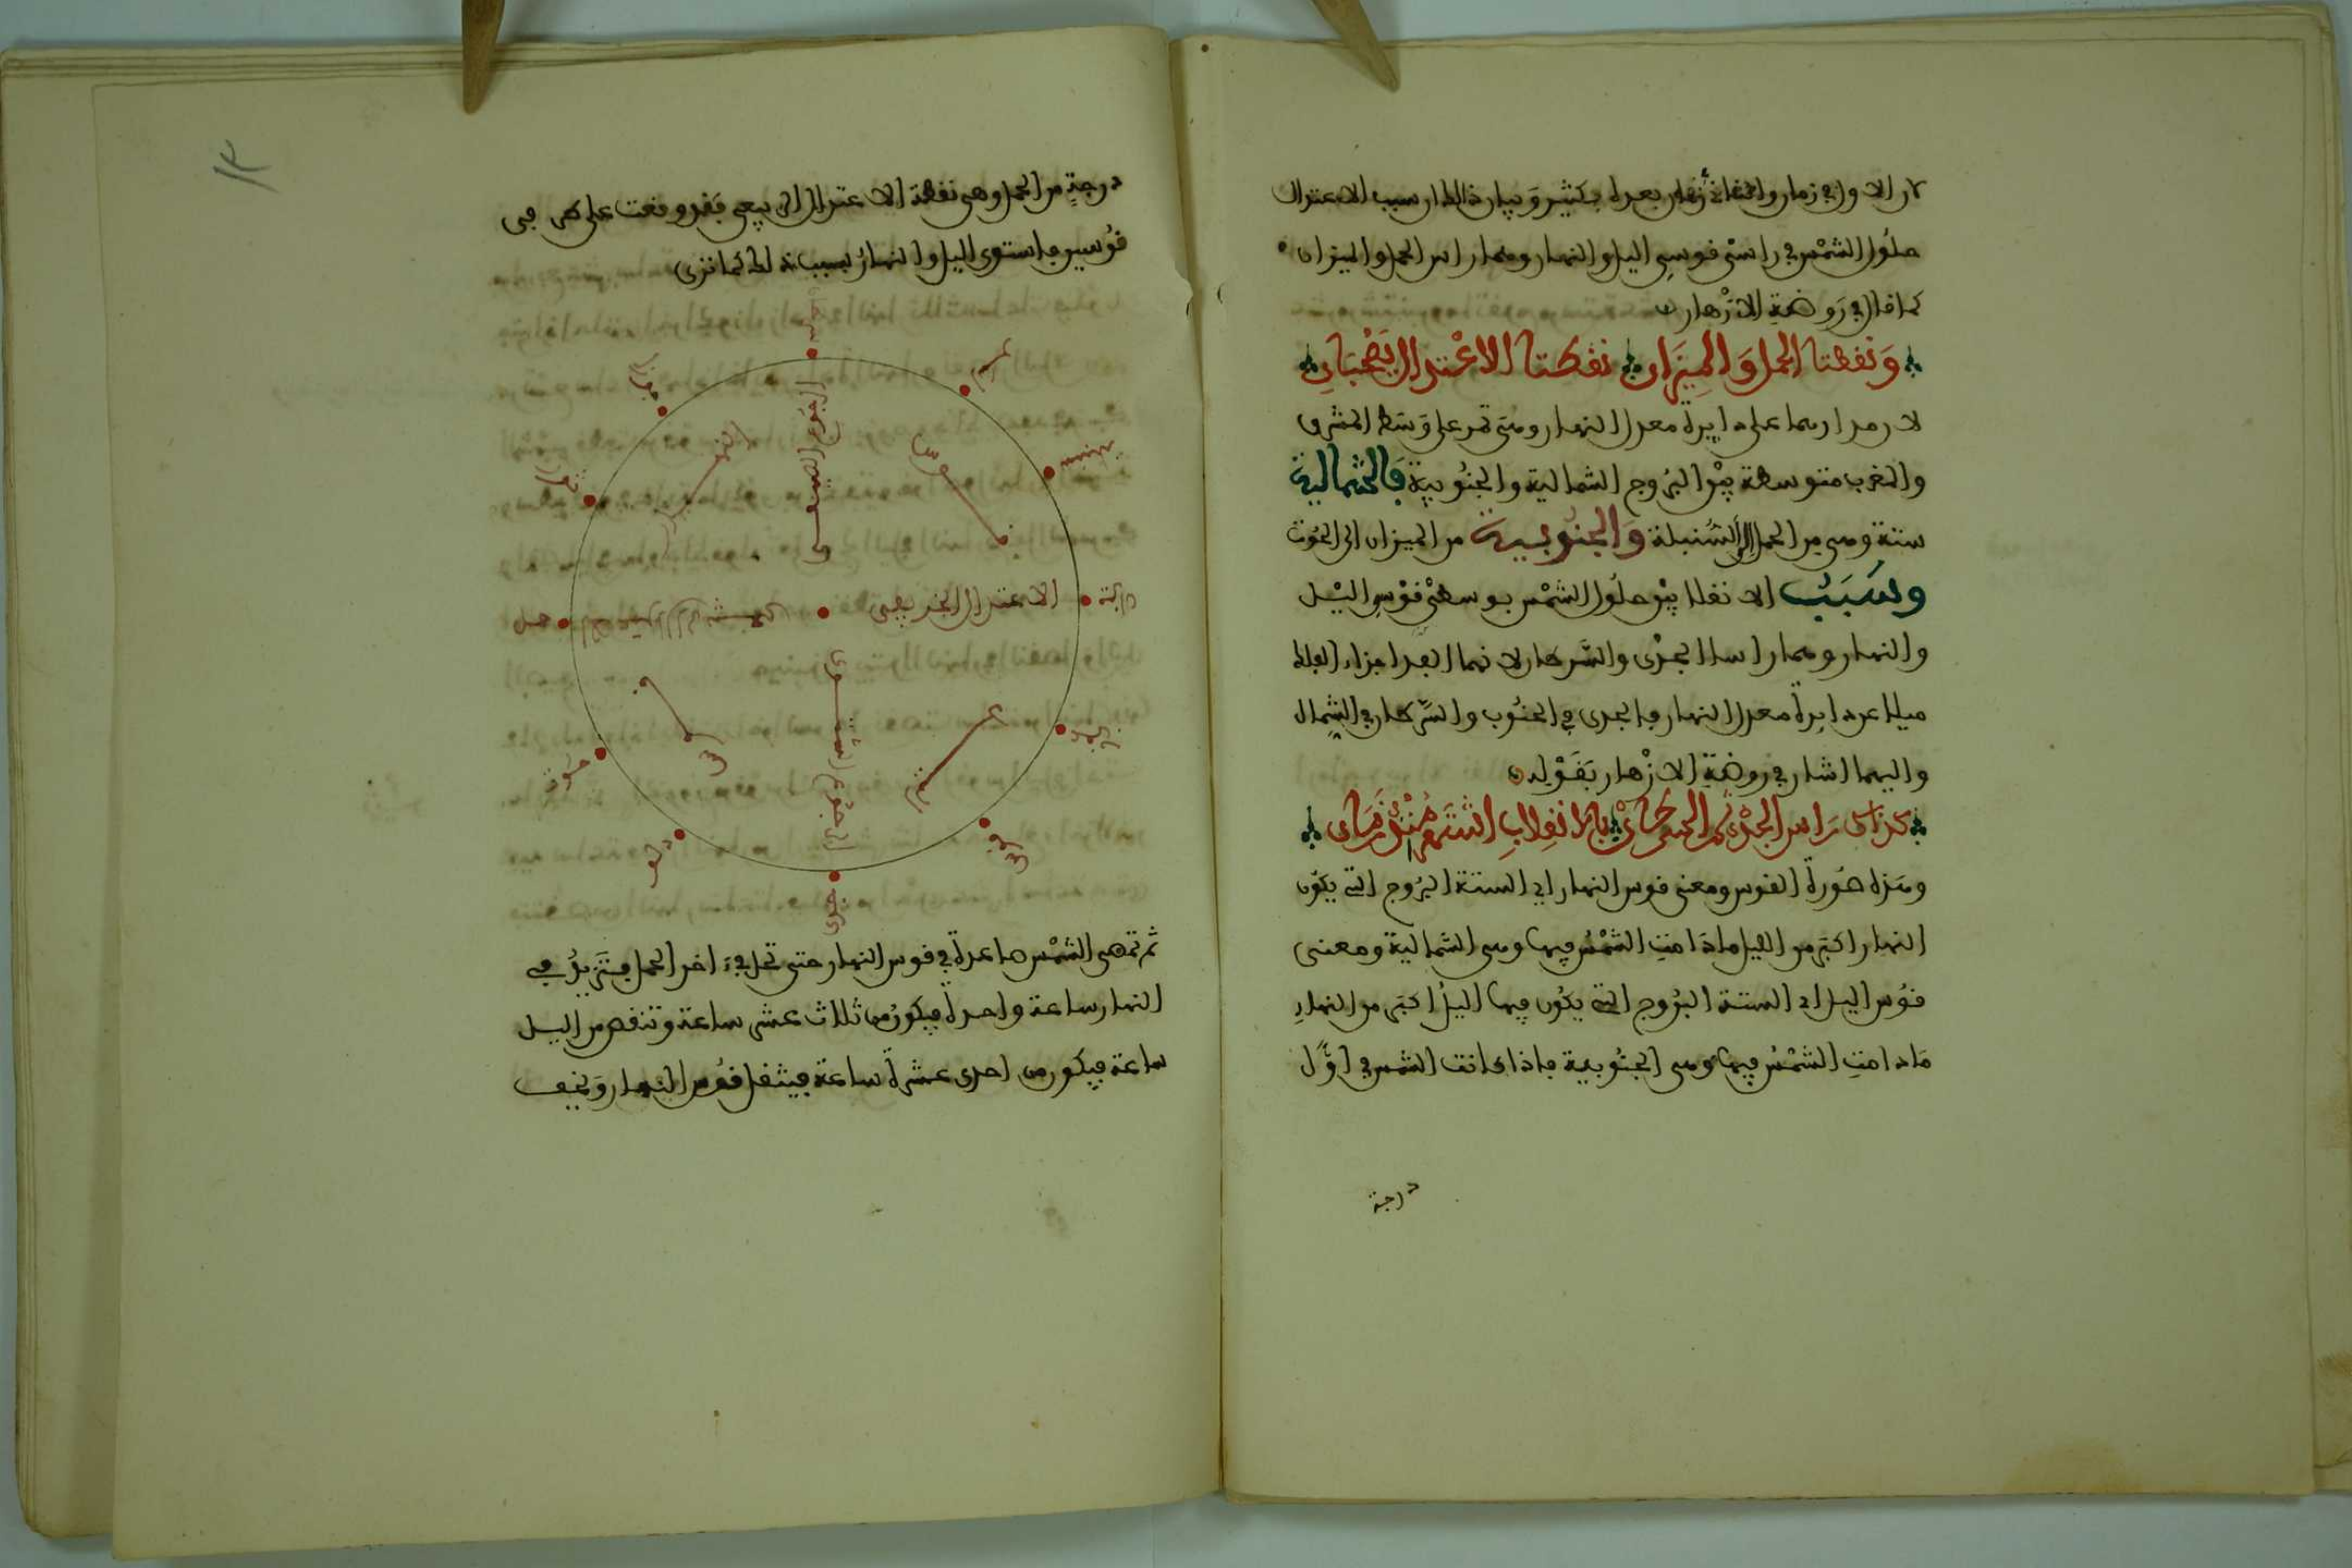 كان الاول في زمان والثقات بعده بكثير وبيان ذلك ان سبب الاعتدال
حلول الشمس في راسي قوسي اليل والنهار وهما راس الحمل والميزان
كما قال في روضة الازهار
ونقطتا الحمل والميزان نقطتا الاعتدال يصحبان
لان مدارهما على دايرة معدل النهار وهي تمر على وسط المشرق
والمغرب متوسطة بين البروج الشمالية والجنوبية فالشمالية
ستة وهي من الحمل الى السنبلة والجنوبية من الميزان الى الحوت
وسبب الانقلابين حلول الشمس بوسطي قوسي اليل
والنهار وهما راسا الجدي والسرطان لانهما ابعد اجزاء الفلك
ميلا عن دايرة معدل النهار فالجدي في الجنوب والسرطان في الشمال
واليهما اشار في روضة الازهار بقوله
كذاك راس الجدي ثم السرطان بالانقلاب
وهذه صورة القوس ومعنى قوس النهار اي الستة البروج التي يكون
النهار اكبر من اليل مادامت الشمس فيها وهي الشمالية ومعنى
قوس اليل اي الستة البروج التي يكون فيها اليل اكبر من النهار
مادامت الشمس فيها وهي الجنوبية فاذا كانت الشمس في اول
درجة
١٣
درجة من الحمل وهي نقطة الاعتدال الربيعي فقد وقعت على طرفي
قوسين فاستوى اليل والنهار بسبب ذلك كما ترى
سرطان
اسد
سنبلة
ميزان
عقرب
قوس
جدي
دلو
حوت
حمل
ثور
جوزا
الرجوع الصيفي
الاعتدال الخريفي
الرجوع الشتوي
قوس
النهار
قوس
ثم تمضي الشمس صاعدة في قوس النهار حتى تحل في اخر الحمل فتزيد في
النهار ساعة واحدة فيكون من ثلاث عشر ساعة وتنقص من اليل
ساعة فيكون من احدى عشرة ساعة فيثقل قوس النهار ويخف